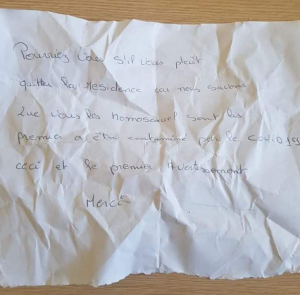 Pourriez vous s'il vous plaît
quitter la résidence car nous savons
que vous les homosexuel sont les
premier a être contaminé par le covid 19
ceci et le premier Avertissement
Merci